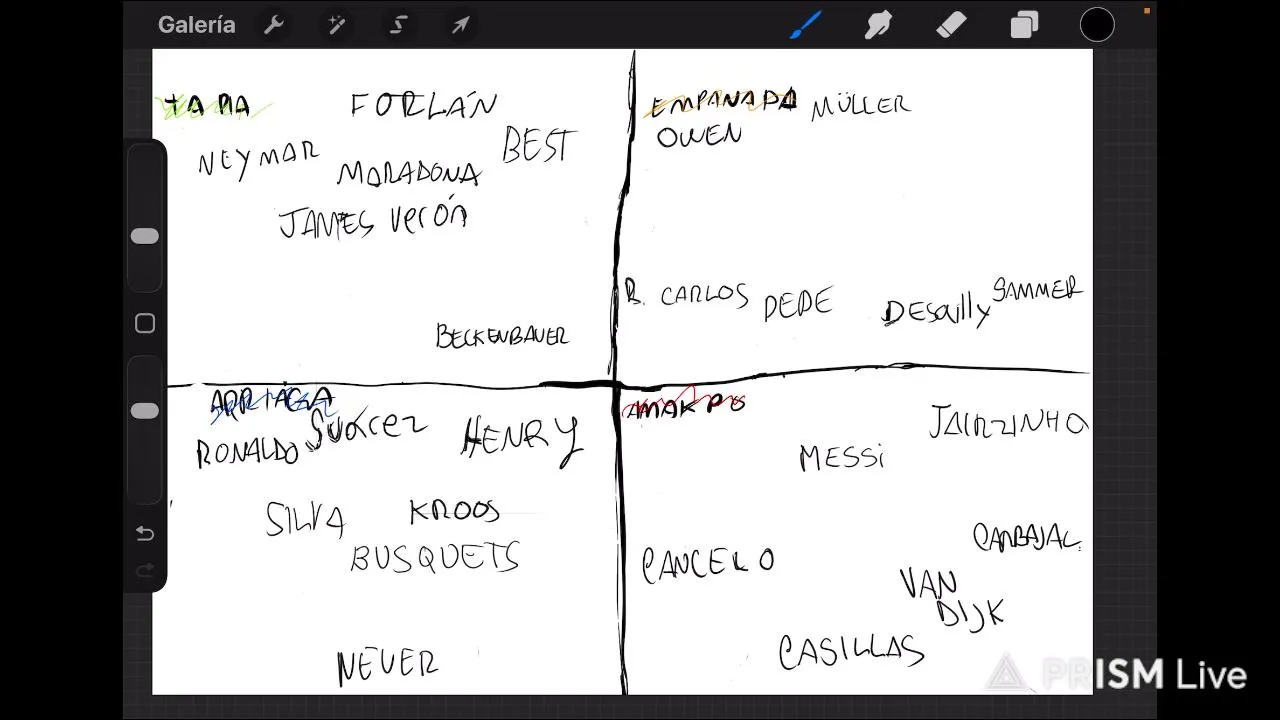 Galería
TAPIA
FORLÁN
BEST
NEYMAR
MARADONA
JAMES Verón
BECKENBAUER
EMPANADA MÜLLER
OWEN
R. CARLOS PEPE
Desailly SAMMER
ARRIAGA
RONALDO Suárez HENRY
SILVA KROOS
BUSQUETS
NEUER
AMAKPO
JAIRZINHO
MESSI
CARBAJAL
CANCELO
VAN
DIJK
CASILLAS
PRISM Live